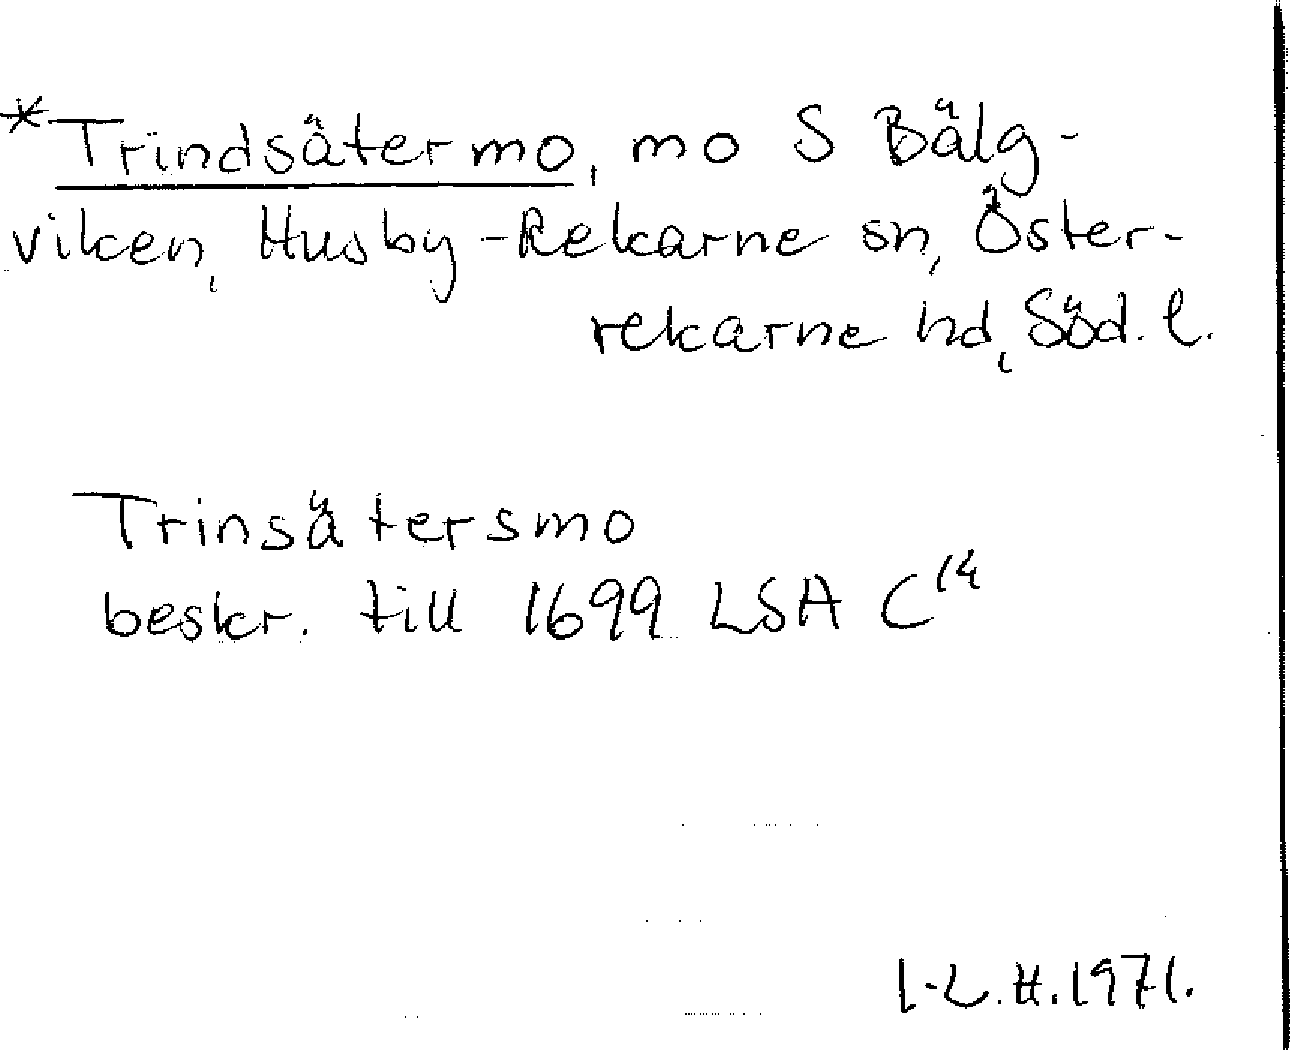 *Trindsätermo, mo S Bälg-
viken, Husby-Rekarne sn, Öster-
rekarne hd, Söd. l.
Trinsätersmo
beskr. till 1699 LSA C¹⁴
I-L.H.1971.